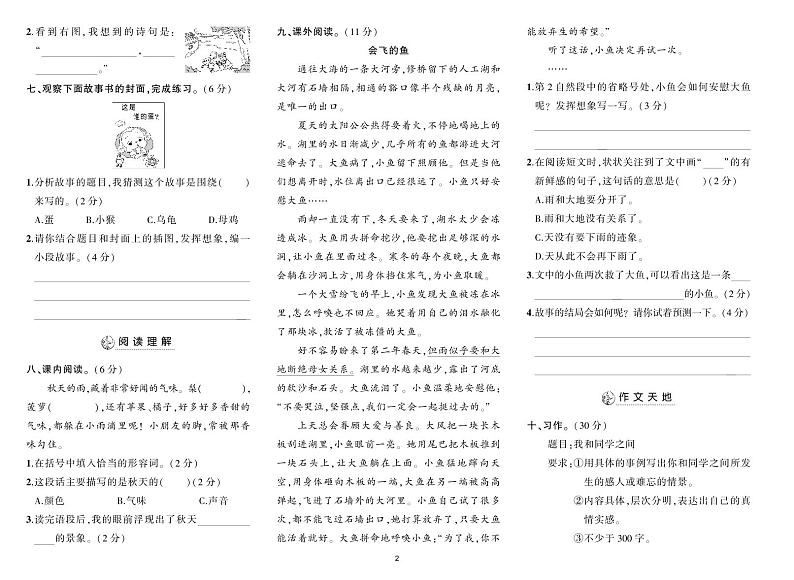 2.看到右图,我想到的诗句是:
“__________,__________
__________。”
七、观察下面故事书的封面,完成练习。(6 分)
这是
谁的蛋?
1.分析故事的题目,我猜测这个故事是围绕(  )
来写的。(2分)
A.蛋 B.小猴 C.乌龟 D.母鸡
2.请你结合题目和封面上的插图,发挥想象,编一
小段故事。(4 分)
阅读理解
八、课内阅读。(6 分)
秋天的雨,藏着非常好闻的气味。梨(  ),
菠萝(  ),还有苹果、橘子,好多好多香甜的
气味,都躲在小雨滴里呢!小朋友的脚,常被那香
味勾住。
1.在括号中填入恰当的形容词。(2 分)
2.这段话主要描写的是秋天的(  )(2 分)
A.颜色 B.气味 C.声音
3.读完语段后,我的眼前浮现出了秋天__________
____的景象。(2 分)
九、课外阅读。(11 分)
会飞的鱼
通往大海的一条大河旁,修桥留下的人工湖和
大河有石墙相隔,相通的豁口像半个残缺的月亮,
是唯一的出口。
夏天的太阳公公热得耍着火,不停地喝地上的
水。湖里的水日渐减少,几乎所有的鱼都游进大河
逃命去了。大鱼病了,小鱼留下照顾他。但是当他
们想离开时,水位离出口已经很远了。小鱼只好安
慰大鱼……
雨却一直没有下,冬天要来了,湖水太少会冻
造成冰。大鱼用头拼命挖沙,他要挖出足够深的水
洞,让小鱼在里面过冬。寒冬的每个夜晚,大鱼都
会躺在沙洞上方,用身体挡住寒气,为小鱼取暖。
一个大雪纷飞的早上,小鱼发现大鱼被冻在冰
里,怎么呼唤也不回应。她哭着用自己的泪水融化
了那块冰,救活了被冻僵的大鱼。
好不容易盼来了第二年春天,但雨似乎要和大
地断绝母女关系。湖里的水越来越少,露出了河底
的软沙和石头。大鱼流泪了。小鱼温柔地安慰他:
“不要哭泣,坚强点,我们一定会一起挺过去的。”
上天总会眷顾大爱与善良。大风把一块长木
板刮进湖里,小鱼眼前一亮。她用尾巴把木板推到
一块石头上,让大鱼躺在上面。小鱼猛地蹿向天
空,用身体砸向木板的一端,大鱼在另一端被高高
弹起,飞进了石墙外的大河里。小鱼自己试了很多
次,都不能飞过石墙出口,她打算放弃了,只要大鱼
能活着就好。大鱼拼命地呼唤小鱼:“为了我,你不
能放弃生的希望。”
听了这话,小鱼决定再试一次。
……
1.第 2 自然段中的省略号处,小鱼会如何安慰大鱼
呢?发挥想象写一写。(3 分)
2.在阅读短文时,状状关注到了文中画“____”的有
新鲜感的句子,这句话的意思是(  )(2 分)
A.雨和大地要分开了。
B.雨和大地没有关系了。
C.天没有要下雨的迹象。
D.天从此不会再下雨了。
3.文中的小鱼两次救了大鱼,可以看出这是一条____
__________的小鱼。(2 分)
4.故事的结局会如何呢?请你试着预测一下。(4 分)
作文天地
十、习作。(30 分)
题目:我和同学之间
要求:①用具体的事例写出你和同学之间所发
生的感人或难忘的情景。
②内容具体,层次分明,表达出自己的真
情实感。
③不少于 300 字。
2